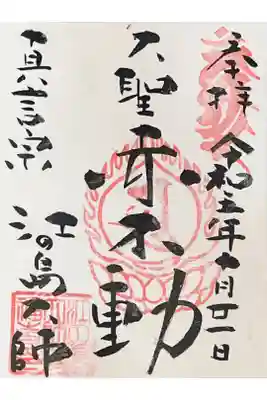 奉拝 令和五年月廿一日
大聖赤不動
真言宗 江の島大師